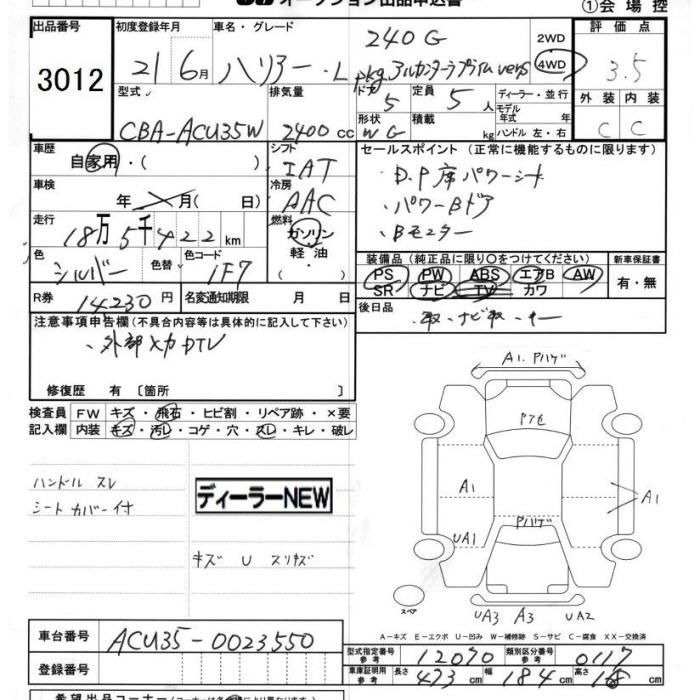 オークション出品申込書
①会場控
出品番号
3012
初度登録年月
21 6月
車名・グレード
ハリアー・240G
L pkg アルカンターラプライム vers
2WD
4WD
評価点
3.5
型式
CBA-ACU35W
排気量
2400 cc
ドア
5
定員
5 人
ディーラー・並行
モデル年式 年
形状
WG
積載 kg
ハンドル 左・右
外装 内装
C C
車歴
自家用・( )
シフト
IAT
セールスポイント (正常に機能するものに限ります)
・D.P席パワーシート
・パワーBドア
・Bモニター
車検
年 月( 日)
冷房
AAC
走行
18万5千422km
燃料
ガソリン
軽油
( )
色
シルバー
色替
色コード
1F7
装備品 (純正品に限り○をつけてください)
新車保証書
PS PW ABS エアB AW
SR ナビ TV カワ
有・無
R券
14230 円
名変通知期限 月 日
後日品
取・ナビ取・
注意事項申告欄 (不具合内容等は具体的に記入して下さい)
・外部入力DTV
修復歴 有 〔箇所 〕
検査員 FW キズ・飛石・ヒビ割・リペア跡・×要
記入欄 内装 キズ・汚レ・コゲ・穴・スレ・キレ・破レ
ハンドル スレ
シートカバー付
ディーラーNEW
キズ U スリキズ
A1. Pハゲ
Pアセ
A1
A1
Pハゲ
UA1
スペア
UA3 A3 UA2
A-キズ E-エクボ U-凹み W-補修跡 S-サビ C-腐食 XX-交換済
車台番号
ACU35-0023550
登録番号
型式指定番号 参考
12070
類別区分番号 参考
0117
車庫証明用 参考
長さ 473 cm
幅 184 cm
高さ 168 cm
希望出品コーナー